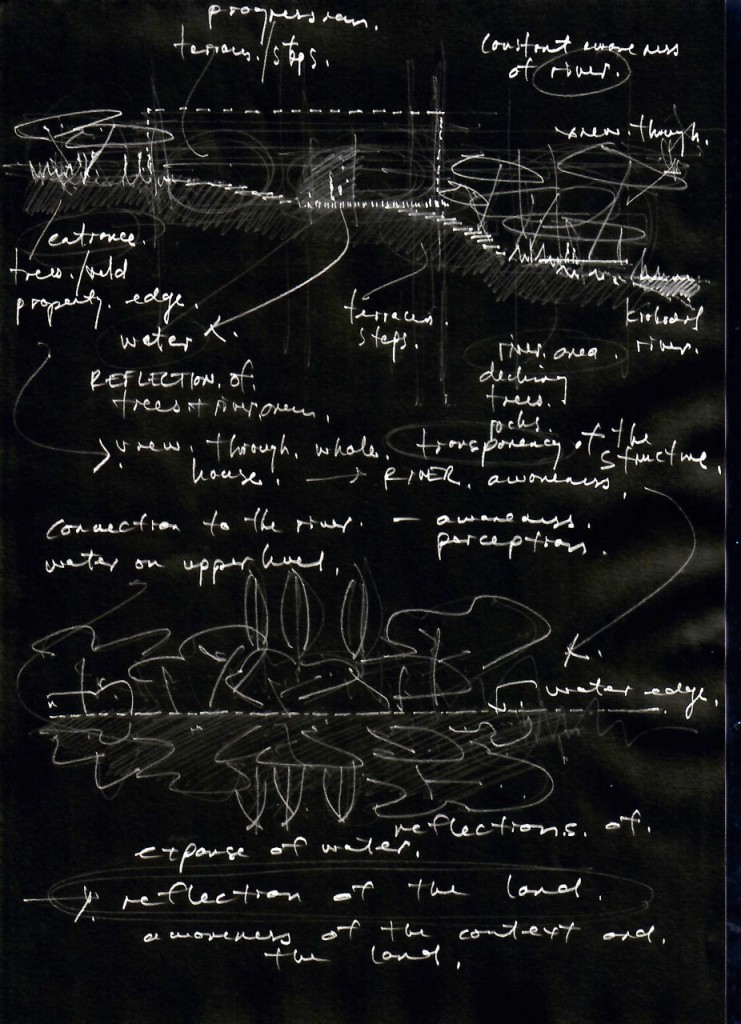 progression.
terraces/steps.
constant awareness
of river.
view through.
entrance.
trees./wild
property. edge.
water
terraces.
steps.
river. area.
decking
trees.
rocks.
river.
REFLECTION. of.
trees +
view. through. whole.
house. → RIVER. awareness.
transparency of the
structure.
connection to the river. — awareness.
perception.
water on upper level.
water edge.
reflections. of.
expanse of water.
reflection of the land.
awareness of the context and.
the land.